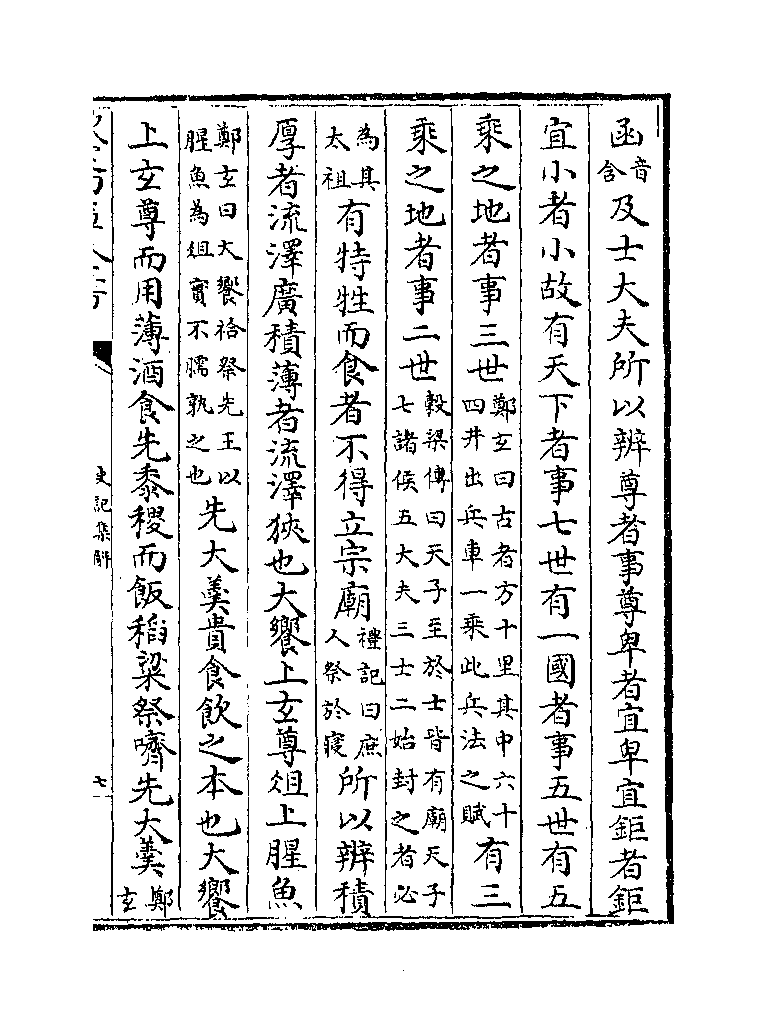 函音含及士大夫所以辨尊者事尊卑者宜卑宜鉅者鉅
宜小者小故有天下者事七世有一國者事五世有五
乘之地者事三世鄭玄曰古者方十里其中六十四井出兵車一乘此兵法之賦有三
乘之地者事二世穀梁傳曰天子至於士皆有廟天子七諸侯五大夫三士二始封之者必
為其太祖有特牲而食者不得立宗廟禮記曰庶人祭於寢所以辨積
厚者流澤廣積薄者流澤狹也大饗上玄尊俎上腥魚
鄭玄曰大饗祫祭先王以腥魚為俎實不臑孰之也先大羹貴食飲之本也大饗
上玄尊而用薄酒食先黍稷而飯稻粱祭嚌先大羹鄭玄
史記集解